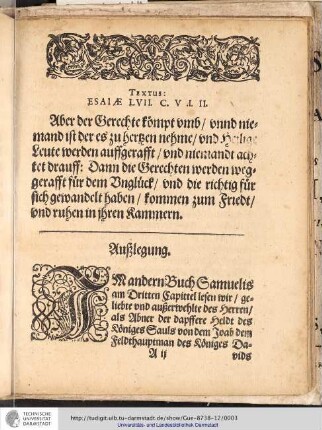 TEXTUS:
ESAIÆ LVII. C. V. I. II.
Aber der Gerechte kömpt vmb/ vnnd nie-
mand ist der es zu hertzen nehme/ vnd Heilige
Leute werden auffgerafft/ vnd niemandt ach-
tet drauff: Dann die Gerechten werden weg-
gerafft für dem Vnglück/ vnd die richtig für
sich gewandelt haben/ kommen zum Friedt/
vnd ruhen in jhren Kammern.
Außlegung.
IM andern Buch Samuelis
am Dritten Capittel lesen wir/ ge-
liebte vnd außerwehlte des Herren/
als Abner der dapffere Heldt des
Königes Sauls von dem Joab dem
Feldthauptman des Königes Da-
A ij
vids
TECHNISCHE
UNIVERSITÄT
DARMSTADT
http://tudigit.ulb.tu-darmstadt.de/show/Gue-8738-12/0003
Universitäts- und Landesbibliothek Darmstadt